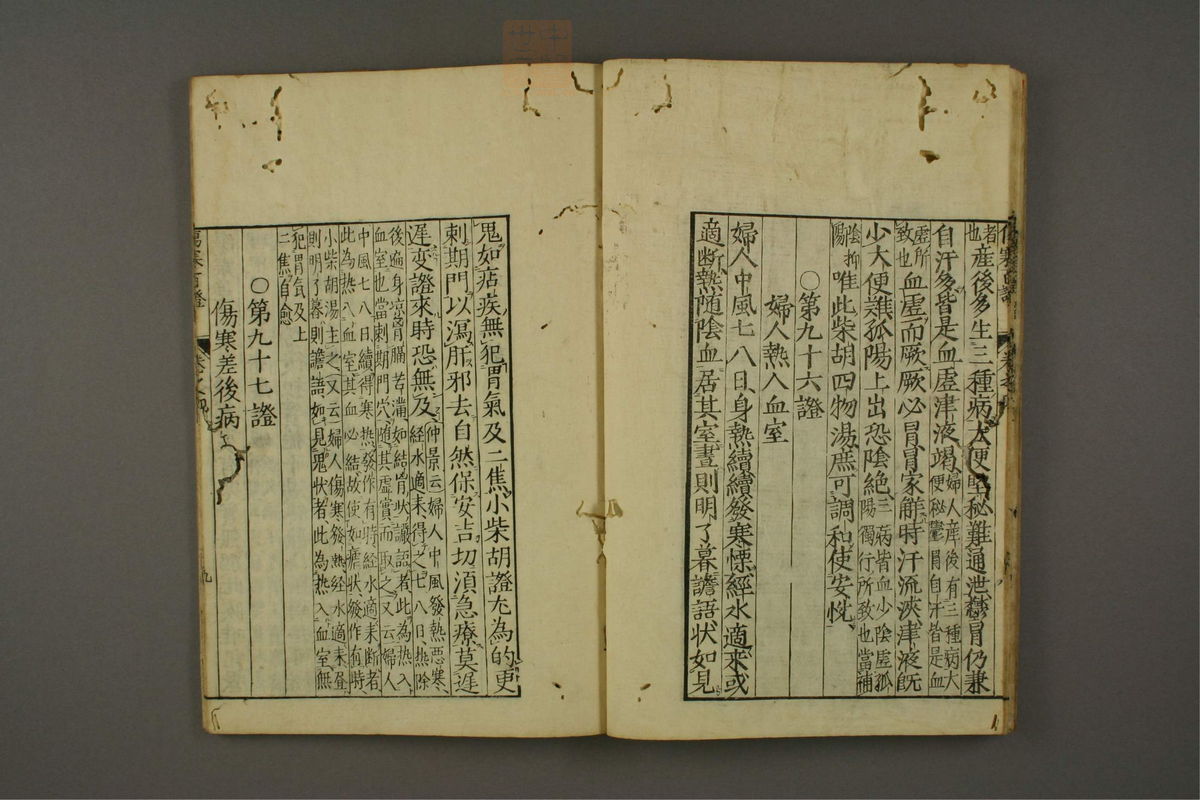 者也產後多生三種病大便堅秘難通泄鬱冒仍兼
自汗多皆是血虛津液竭婦人產後有三種病大便秘鬱冒自汗皆是血
虛所致也血虛而厥厥必冒冒家觧時汗流浹津液旣
少大便難孤陽上出恐陰絶三病皆血少陰虛孤陽獨行所致也當補
陰抑陽唯此柴胡四物湯庶可調和使安恱
○第九十六證
婦人熱入血室
婦人中風七八日身熱續續發寒慄經水適來或
適斷熱随陰血居其室晝則明了暮譫語状如見
鬼如痁疾無犯胃氣及二焦小柴胡證尤為的更
刺期門以瀉肝邪去自然保安吉切湏急療莫遅
遅变證來時恐無及仲景云婦人中風發熱惡寒
經水適来得之七八日熱除
後遍身凉胷膈苦滿如結胷状讝語者此為热入
血室也當刺期門穴随其虛實而取之又云婦人
中風七八日續得寒热發作有時經水適来断者
此為热入血室其血必結故使如瘧状發作有時
小柴胡湯主之又云婦人傷寒發热經水適来晝
則明了暮則譫語如見鬼状者此為热入血室無
犯胃氣及上
二焦自愈
○第九十七證
傷寒差後病
傷寒百證
九